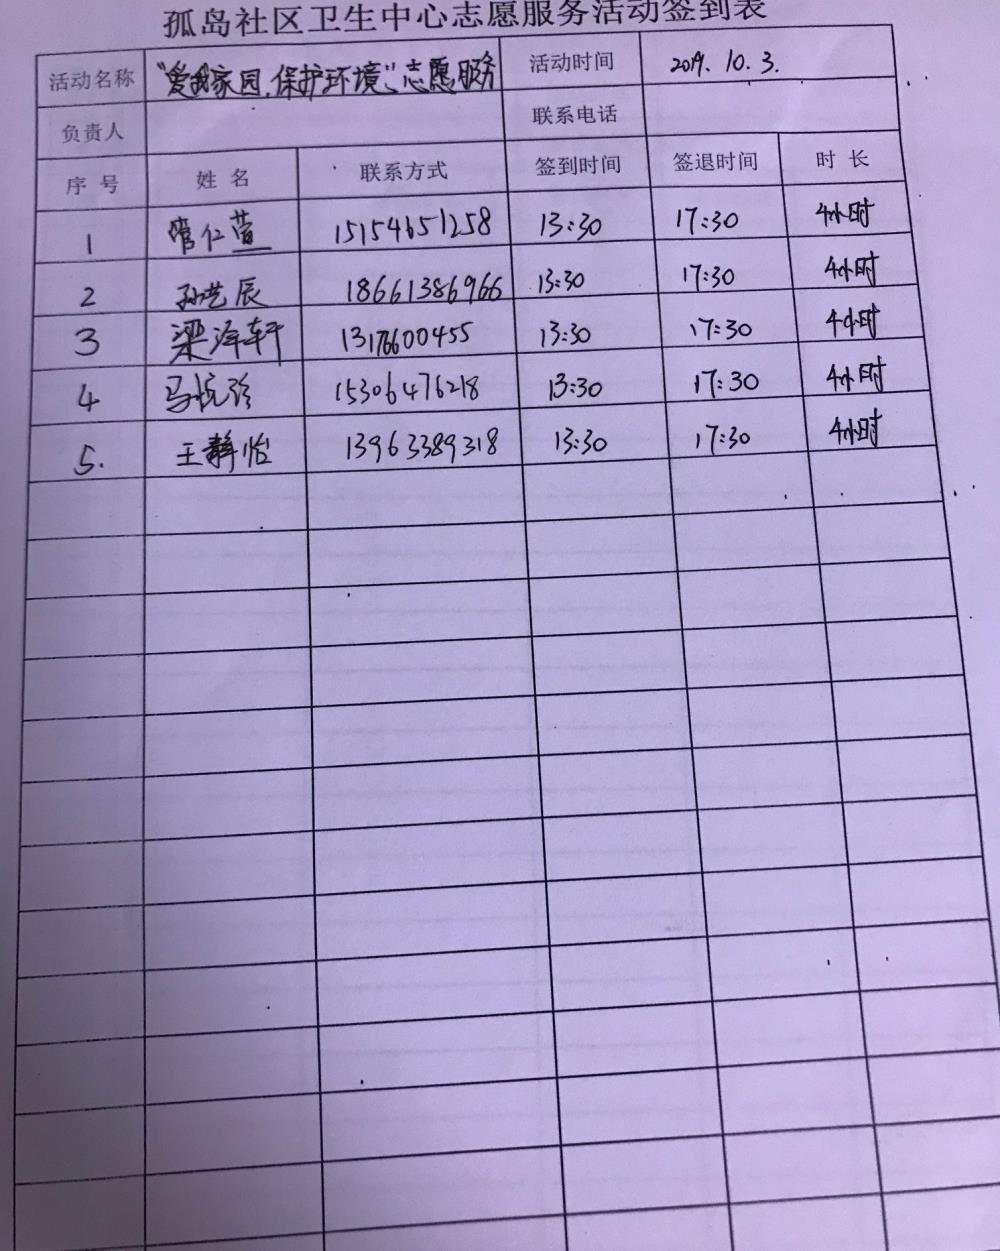 孤岛社区卫生中心志愿服务活动签到表
活动名称 “爱我家园.保护环境”志愿服务 活动时间 2019. 10. 3.
负责人 联系电话
序 号 姓 名 联系方式 签到时间 签退时间 时 长
1 管仁萱 15154651258 13:30 17:30 4小时
2 孙艺辰 18661386966 13:30 17:30 4小时
3 梁泽轩 13176600455 13:30 17:30 4小时
4 15306476218 13:30 17:30 4小时
5. 王静怡 13963389318 13:30 17:30 4小时